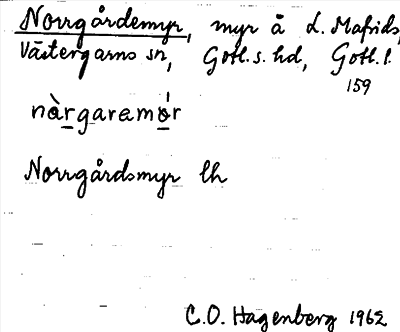 Norrgårdemyr, myr å L. Mafrids,
Västergarns sn, Gotl. s. hd, Gotl. l.
159
nàrgaremór
Norrgårdsmyr lh
C.O. Hagenberg 1962